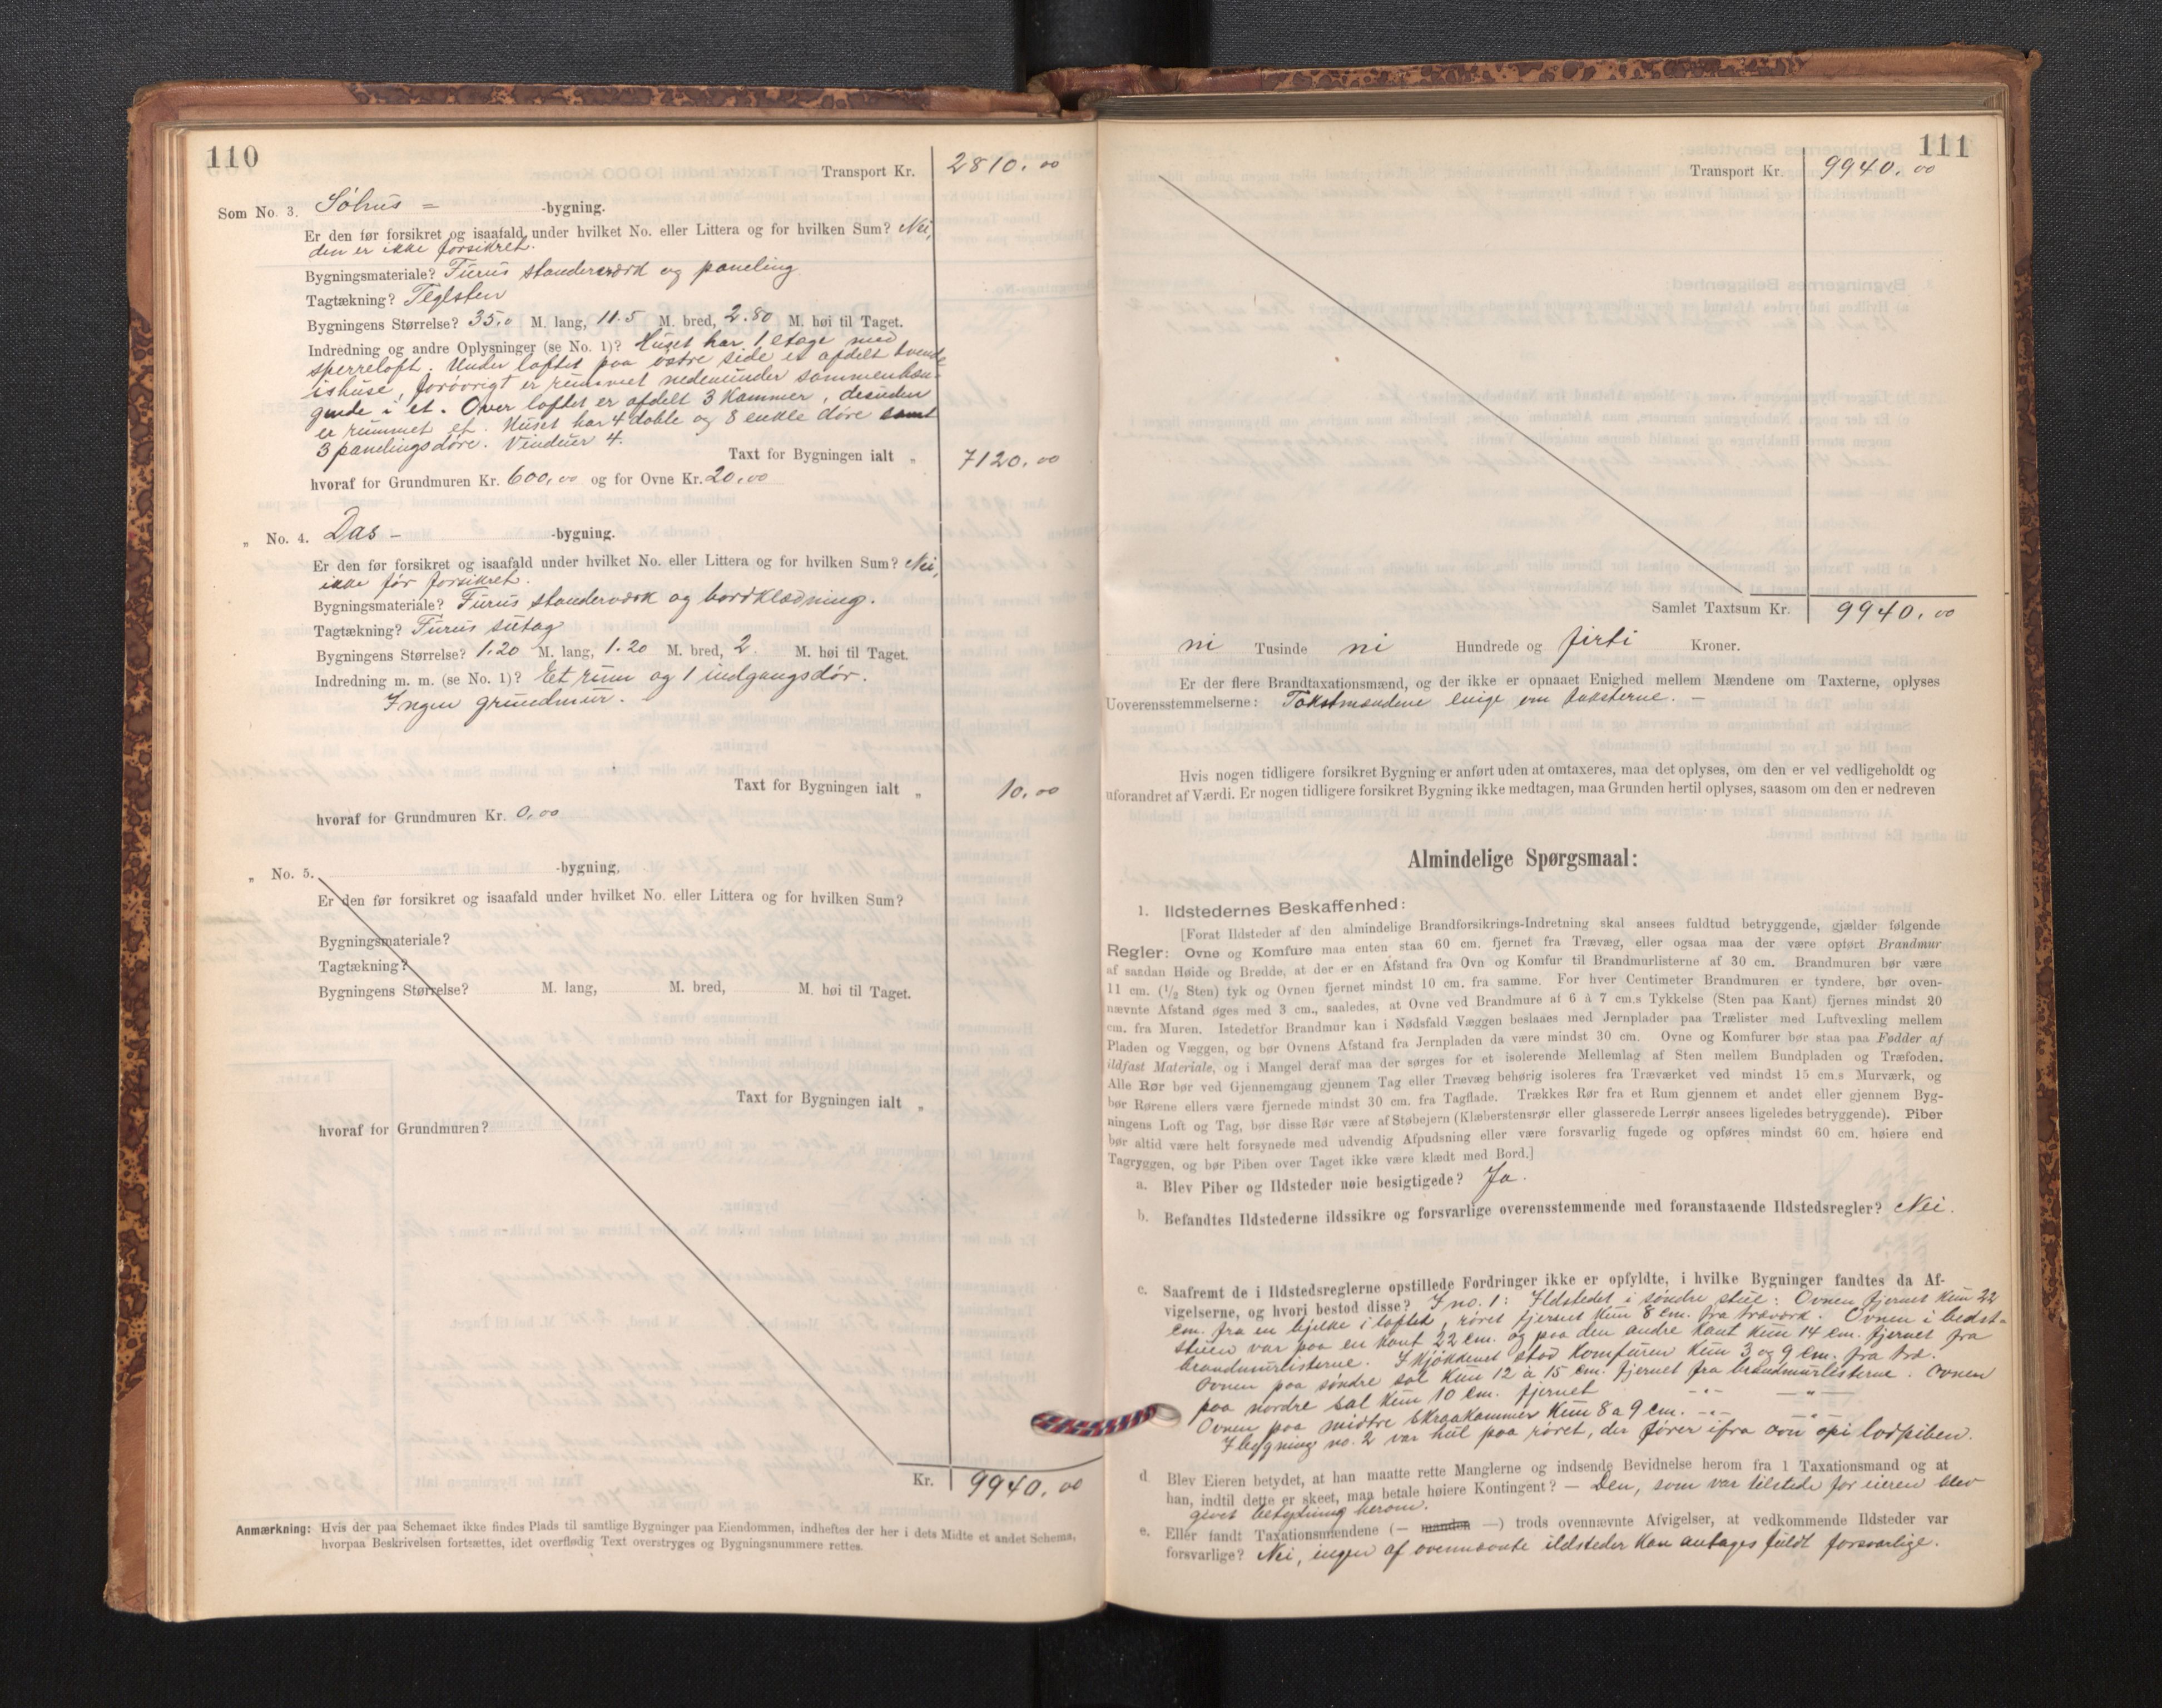 110
Transport Kr. 2810.00
Som No. 3. Söhus = -bygning.
Er den før forsikret og isaafald under hvilket No. eller Littera og for hvilken Sum? Nei,
den er ikke forsikret.
Bygningsmateriale? Furus standerværk og paneling
Tagtækning? Teglsten
Bygningens Størrelse? 35,0 M. lang, 11.5 M. bred, 2.80 M. høi til Taget.
Indredning og andre Oplysninger (se No. 1)? Huset har 1 etage med
sperreloft. Under loftet paa østre side er afdelt tvende
ishuse, forøvrigt er rummet nedenunder sammenhæn-
gende i et. Over loftet er afdelt 3 kammer, desuden
er rummet et. Huset har 4 doble og 8 enkle døre samt
3 panelingsdøre. Vinduer 4.
Taxt for Bygningen ialt „ 7120.00
hvoraf for Grundmuren Kr. 600,00 og for Ovne Kr. 20,00
„ No. 4. Das - -bygning.
Er den før forsikret og isaafald under hvilket No. eller Littera og for hvilken Sum? Nei,
ikke før forsikret.
Bygningsmateriale? Furus standerværk og bordklædning.
Tagtækning? Furus sutag
Bygningens Størrelse? 1.20 M. lang, 1.20 M. bred, 2. M. høi til Taget.
Indredning m. m. (se No. 1)? Et rum og 1 indgangsdør.
Ingen grundmur.
Taxt for Bygningen ialt „ 10.00
hvoraf for Grundmuren Kr. 0,00
„ No. 5. -bygning,
Er den før forsikret og isaafald under hvilket No. eller Littera og for hvilken Sum?
Bygningsmateriale?
Tagtækning?
Bygningens Størrelse? M. lang, M. bred, M. høi til Taget.
Taxt for Bygningen ialt „
hvoraf for Grundmuren?
Kr. 9940.00
Anmærkning: Hvis der paa Schemaet ikke findes Plads til samtlige Bygninger paa Eiendommen, indheftes der her i dets Midte et andet Schema,
hvorpaa Beskrivelsen fortsættes, idet overflødig Text overstryges og Bygningsnummere rettes.
111
Transport Kr. 9940.00
Samlet Taxtsum Kr. 9940.00
ni Tusinde ni Hundrede og firti Kroner.
Er der flere Brandtaxationsmænd, og der ikke er opnaaet Enighed mellem Mændene om Taxterne, oplyses
Uoverensstemmelserne: Takstmændene enige om taksterne. -
Hvis nogen tidligere forsikret Bygning er anført uden at omtaxeres, maa det oplyses, om den er vel vedligeholdt og
uforandret af Værdi. Er nogen tidligere forsikret Bygning ikke medtagen, maa Grunden hertil oplyses, saasom om den er nedreven
Almindelige Spørgsmaal:
1. Ildstedernes Beskaffenhed:
[Forat Ildsteder af den almindelige Brandforsikrings-Indretning skal ansees fuldtud betryggende, gjælder følgende
Regler: Ovne og Komfure maa enten staa 60 cm. fjernet fra Trævæg, eller ogsaa maa der være opført Brandmur
af saadan Høide og Bredde, at der er en Afstand fra Ovn og Komfur til Brandmurlisterne af 30 cm. Brandmuren bør være
11 cm. (1/2 Sten) tyk og Ovnen fjernet mindst 10 cm. fra samme. For hver Centimeter Brandmuren er tyndere, bør oven-
nævnte Afstand øges med 3 cm., saaledes, at Ovne ved Brandmure af 6 à 7 cm.s Tykkelse (Sten paa Kant) fjernes mindst 20
cm. fra Muren. Istedetfor Brandmur kan i Nødsfald Væggen beslaaes med Jernplader paa Trælister med Luftvexling mellem
Pladen og Væggen, og bør Ovnens Afstand fra Jernpladen da være mindst 30 cm. Ovne og Komfurer bør staa paa Fødder af
ildfast Materiale, og i Mangel deraf maa der sørges for et isolerende Mellemlag af Sten mellem Bundpladen og Træfoden.
Alle Rør bør ved Gjennemgang gjennem Tag eller Trævæg behørig isoleres fra Træværket ved mindst 15 cm.s Murværk, og
bør Rørene ellers være fjernede mindst 30 cm. fra Tagflade. Trækkes Rør fra et Rum gjennem et andet eller gjennem Byg-
ningens Loft og Tag, bør disse Rør være af Støbejern (Klæberstensrør eller glasserede Lerrør ansees ligeledes betryggende). Piber
bør altid være helt forsynede med udvendig Afpudsning eller være forsvarlig fugede og opføres mindst 60 cm. høiere end
Tagryggen, og bør Piben over Taget ikke være klædt med Bord.]
a. Blev Piber og Ildsteder nøie besigtigede? Ja.
b. Befandtes Ildstederne ildssikre og forsvarlige overensstemmende med foranstaaende Ildstedsregler? Nei.
c. Saafremt de i Ildstedsreglerne opstillede Fordringer ikke er opfyldte, i hvilke Bygninger fandtes da Af-
vigelserne, og hvori bestod disse? I no. 1: Ildstedet i søndre stue: Ovnen fjernet kun 22
cm. fra en bjelke i loftet, røret fjernet kun 8 cm. fra træværk. Ovnen i bedst-
stuen var paa en kant 22 cm. og paa den andre kant kun 14 cm. fjernet fra
brandmurlisterne. I kjøkkenet stod komfuren kun 3 og 9 cm. fra træ.
Ovnen paa søndre sal kun 12 à 15 cm. fjernet fra brandmurlisterne. Ovnen
paa nordre sal kun 10 cm. fjernet -"- -"-
Ovnen paa midtre skraakammer kun 8 a 9 cm. -"- -"-
I bygning no. 2 var hul paa røret, der fører ifra ovn op i lodpiben.
d. Blev Eieren betydet, at han maatte rette Manglerne og indsende Bevidnelse herom fra 1 Taxationsmand og at
han, indtil dette er skeet, maa betale høiere Kontingent? - Den, som var tilstede for eieren blev
givet betydning herom.
e. Eller fandt Taxationsmændene (— manden —) trods ovennævnte Afvigelser, at vedkommende Ildsteder var
forsvarlige? Nei, ingen af ovennævnte ildsteder kan antages fuldt forsvarlige.